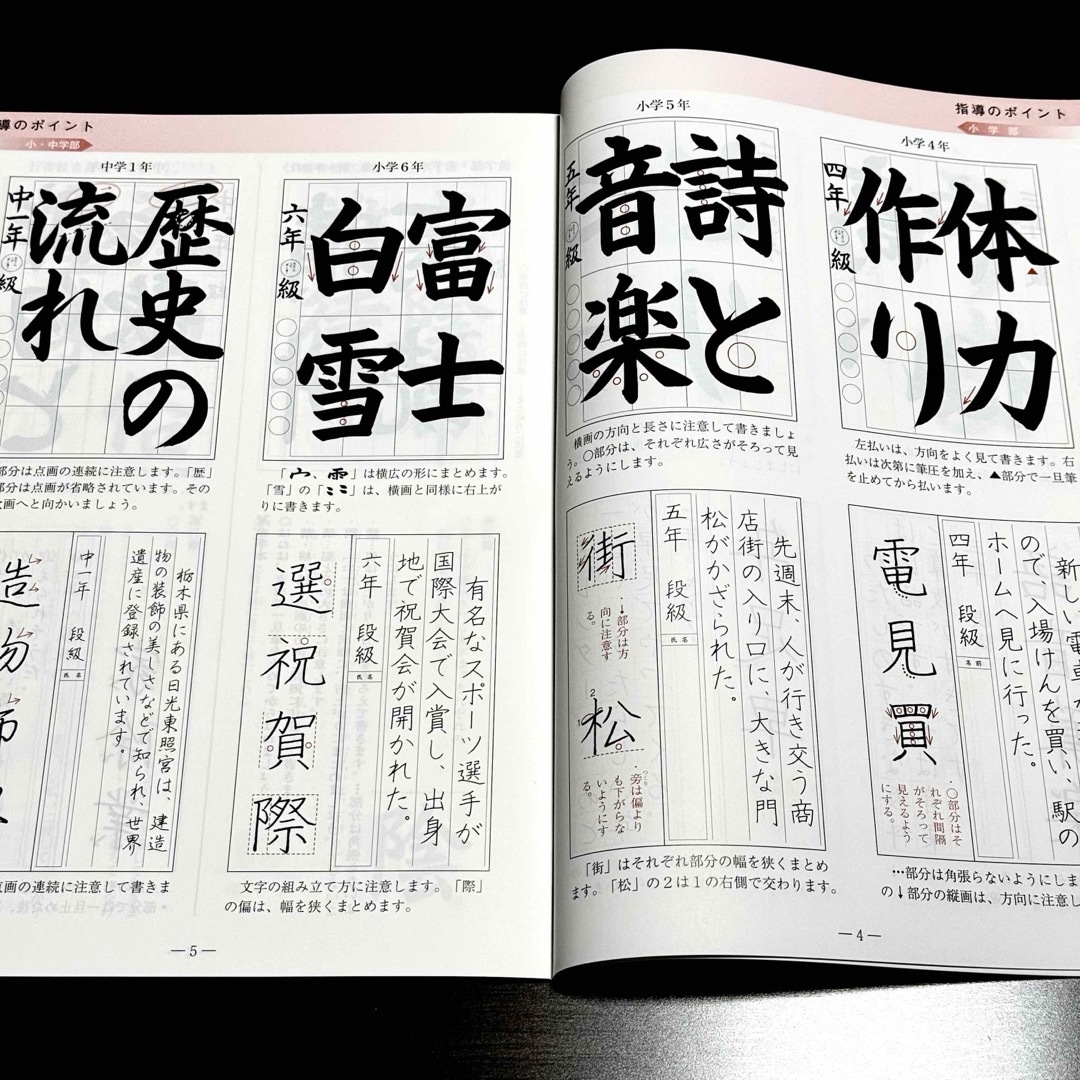 指導のポイント
小学部
小学4年
体力
作り
四年
級
左払いは、方向をよく見て書きます。右
払いは次第に筆圧を加え、▲部分で一旦筆
を止めてから払います。
新しい電車が
ので、入場けんを買い、駅の
ホームへ見に行った。
四年 段級
名前
電見買
・○部分はそ
れぞれ間隔
がそろって
見えるよう
にする。
…部分は角張らないようにしま
の↓部分の縦画は、方向に注意し
小学5年
詩と
音楽
五年
級
横画の方向と長さに注意して書きましょ
う。○部分は、それぞれ広さがそろって見
えるようにします。
先週末、人が行き交う商
店街の入り口に、大きな門
松がかざられた。
五年 段級
氏名
街
・↓部分は方
向に注意す
る。
松
2
1
・旁は偏より
つくり
も下がらな
いようにす
る。
「街」はそれぞれ部分の幅を狭くまとめ
ます。「松」の2は1の右側で交わります。
—4—
導のポイント
小・中学部
小学6年
富士
白雪
六年
級
は横広の形にまとめます。
「雪」の「」は、横画と同様に右上が
りに書きます。
有名なスポーツ選手が
国際大会で入賞し、出身
地で祝賀会が開かれた。
六年 段級
氏名
選祝賀際
文字の組み立て方に注意します。「際」
の偏は、幅を狭くまとめます。
中学1年
歴史の
流れ
中一年
級
部分は点画の連続に注意します。「歴」
部分は点画が省略されています。その
画へと向かいましょう。
栃木県にある日光東照宮は、建造
物の装飾の美しさなどで知られ、世界
遺産に登録されています。
中一年 段級
氏名
造物飾
画の連続に注意して書きま
—5—